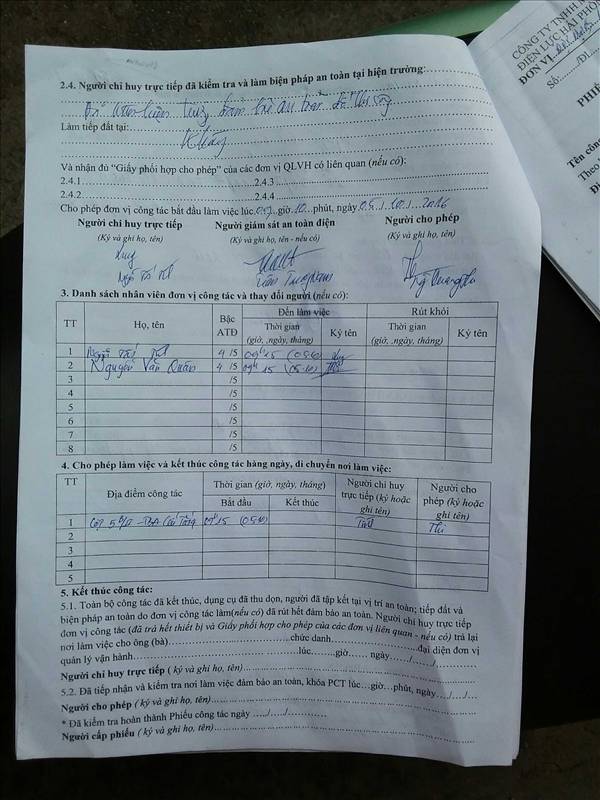 CÔNG TY TNHH M
ĐIỆN LỰC HẢI PHÒ
ĐƠN VỊ
Số: /ĐL
PHIẾ
Tên công
Theo
Đị
2.4. Người chỉ huy trực tiếp đã kiểm tra và làm biện pháp an toàn tại hiện trường:
Làm tiếp đất tại:
Không
Và nhận đủ "Giấy phối hợp cho phép" của các đơn vị QLVH có liên quan (nếu có):
2.4.1 2.4.3
2.4.2 2.4.4
Cho phép đơn vị công tác bắt đầu làm việc lúc 09 giờ 10 phút, ngày 05 / 10 / 2016
Người chỉ huy trực tiếp Người giám sát an toàn điện Người cho phép
(Ký và ghi họ, tên) (Ký và ghi họ, tên - nếu có) (Ký và ghi họ, tên)
3. Danh sách nhân viên đơn vị công tác và thay đổi người (nếu có):
TT Họ, tên Bậc ATĐ Đến làm việc Rút khỏi
Thời gian (giờ, ,ngày, tháng) Ký tên Thời gian (giờ, ,ngày, tháng) Ký tên
1 4 /5 09h15 (05-10)
2 Nguyễn Văn Quân 4 /5 09h15 (05-10)
3 /5
4 /5
5 /5
6 /5
7 /5
8 /5
4. Cho phép làm việc và kết thúc công tác hàng ngày, di chuyển nơi làm việc:
TT Địa điểm công tác Thời gian (giờ, ngày, tháng) Người chỉ huy trực tiếp (ký hoặc ghi tên) Người cho phép (ký hoặc ghi tên)
Bắt đầu Kết thúc
1 09h15 (05-10)
2
3
4
5
5. Kết thúc công tác:
5.1. Toàn bộ công tác đã kết thúc, dụng cụ đã thu dọn, người đã tập kết tại vị trí an toàn; tiếp đất và
biện pháp an toàn do đơn vị công tác làm(nếu có) đã rút hết đảm bảo an toàn. Người chỉ huy trực tiếp
đơn vị công tác (đã trả hết thiết bị và Giấy phối hợp cho phép của các đơn vị liên quan - nếu có) trả lại
nơi làm việc cho ông (bà) chức danh đại diện đơn vị
quản lý vận hành lúc giờ ngày / /
Người chỉ huy trực tiếp ( ký và ghi họ, tên)
5.2. Đã tiếp nhận và kiểm tra nơi làm việc đảm bảo an toàn, khóa PCT lúc…giờ…phút, ngày…/…/…
Người cho phép ( ký và ghi họ, tên)
* Đã kiểm tra hoàn thành Phiếu công tác ngày …./…./
Người cấp phiếu ( ký và ghi họ, tên)